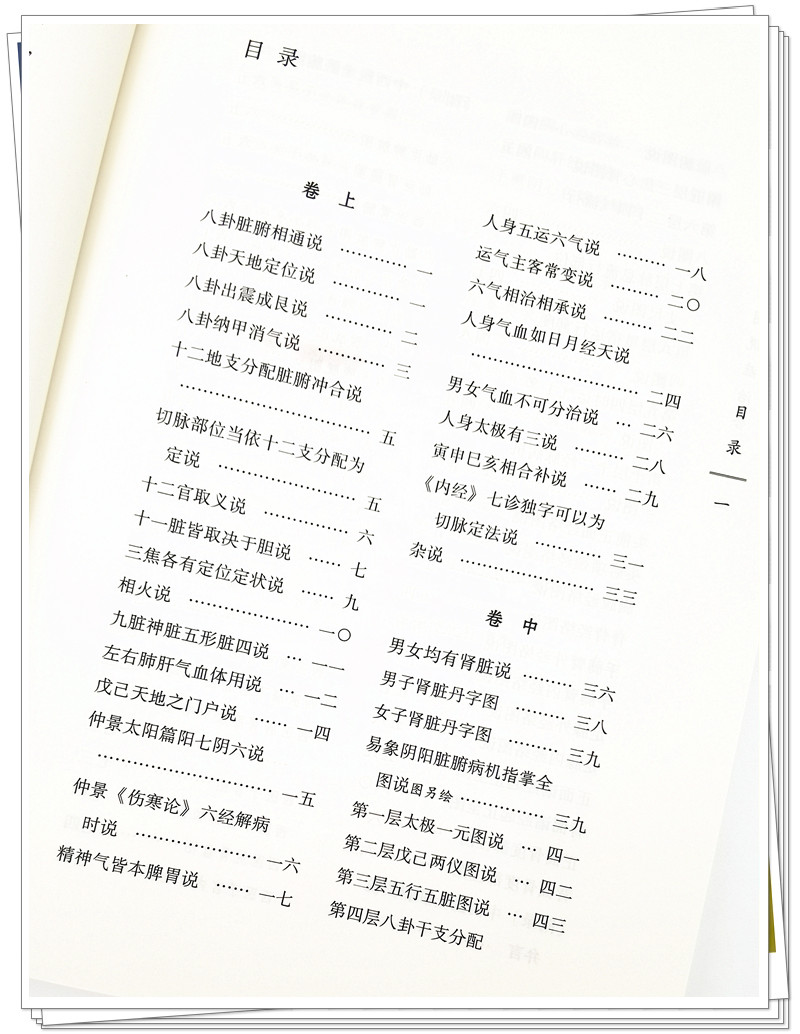 目录
卷上
八卦脏腑相通说 ………… 一
八卦天地定位说 ………… 一
八卦出震成艮说 ………… 二
八卦纳甲消气说 ………… 三
十二地支分配脏腑冲合说
………………………… 五
切脉部位当依十二支分配为
定说 …………………… 五
十二官取义说 …………… 六
十一脏皆取决于胆说 …… 七
三焦各有定位定状说 …… 九
相火说 ………………… 一〇
九脏神脏五形脏四说 … 一一
左右肺肝气血体用说 … 一二
戊己天地之门户说 …… 一四
仲景太阳篇阳七阴六说
………………………… 一五
仲景《伤寒论》六经解病
时说 ………………… 一六
精神气皆本脾胃说 …… 一七
人身五运六气说 ……… 一八
运气主客常变说 ……… 二〇
六气相治相承说 ……… 二二
人身气血如日月经天说
………………………… 二四
男女气血不可分治说 … 二六
人身太极有三说 ……… 二八
寅申巳亥相合补说 …… 二九
《内经》七诊独字可以为
切脉定法说 ………… 三一
杂说 …………………… 三三
卷中
男女均有肾脏说 ……… 三六
男子肾脏丹字图 ……… 三八
女子肾脏丹字图 ……… 三九
易象阴阳脏腑病机指掌全
图说图另绘 …………… 三九
第一层太极一元图说 … 四一
第二层戊己两仪图说 … 四二
第三层五行五脏图说 … 四三
第四层八卦干支分配
目录
一